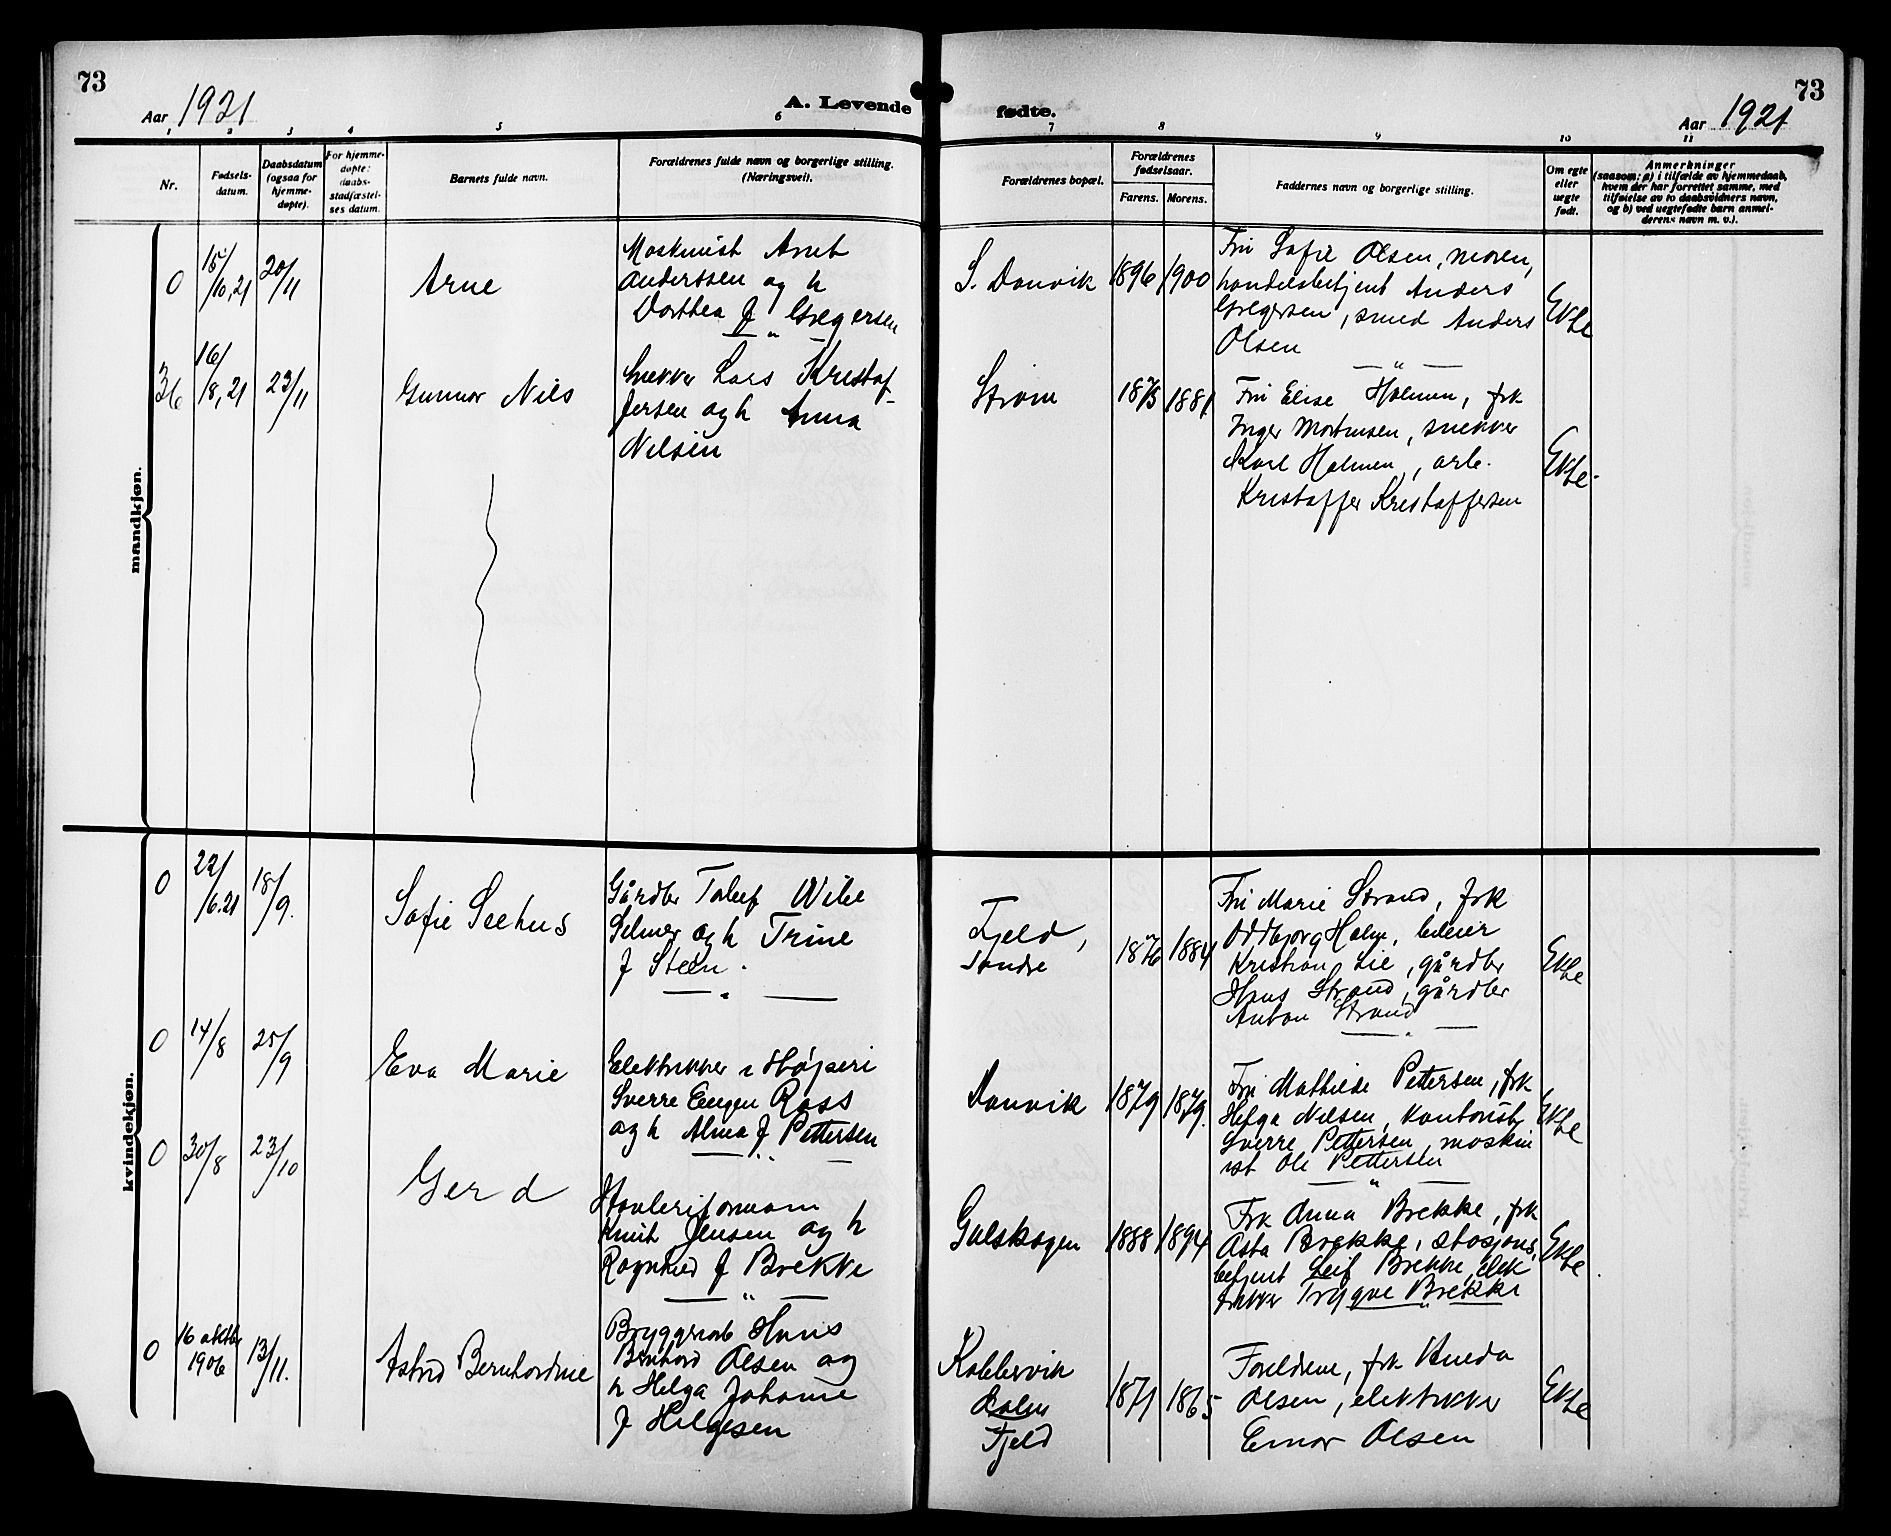 73
Aar 1921
A. Levende
fødte.
Aar 1921
73
1 2 3 4 5 6 7 8 9 10 11
Nr.
Fødsels-
datum.
Daabsdatum
(ogsaa for
hjemme-
døpte).
For hjemme-
døpte:
daabs-
stadfæstel-
ses datum.
Barnets fulde navn.
Forældrenes fulde navn og borgerlige stilling.
(Næringsvei).
Forældrenes bopæl.
Forældrenes
fødselsaar.
Farens. Morens.
Faddernes navn og borgerlige stilling.
Om egte
eller
uegte
født.
Anmerkninger
(saasom: a) i tilfælde av hjemmedaab,
hvem der har forrettet samme, med
tilføielse av to daabsvidners navn,
og b) ved uegtefødte barn anmel-
derens navn m. v.).
mandkjøn.
0
15/
/10, 21
20/
/11
Arne
Maskinist Arnt
Anderssen og h
Dorthea f Gregersen
S. Danvik
1896 1900
Fru Sofie Olsen, moren,
handelsbetjent Anders
Gregersen, smed Anders
Olsen
Ekte
36
16/
/8, 21
23/
/11
Gunnar Nils
Snekker Lars Kristof-
fersen og h Anna
Nilsen
Strøm
1875 1881
Fru Elise Holmen, frk
Inger Mortensen, snekker
Karl Holmen, arb.
Kristoffer Kristoffersen
Ekte.
kvindekjøn.
0
22/
/6.21
18/
/9.
Sofie Seehus
Gårdbr Tollef Wibe
Selmer og h Trine
f Steen.
Fjeld,
Søndre
1876 1884
Fru Marie Strand, frk
Oddbjørg Holm, bileier
Kristian Lie, gårdbr
Hans Strand, gårdbr
Anton Strand
Ekte
0
14/
/8
25/
/9
Eva Marie
Elektrikker i Støperi
Sverre Eugen Ross
og h Alma f Pettersen
Danvik
1879 1879.
Fru Mathilde Pettersen, frk
Helga Nilsen, kontorist
Sverre Pettersen, maskin
ist Ole Pettersen
Ekte
0
30/
/8
23/
/10
Gerd
Høvleriformann
Knut Jensen og h
Ragnhild f Brekke
Gulskogen
1888 1894
Frk Anna Brekke, frk
Asta Brekke, stasjons,
betjent Leif Brekke, elek
trikker Trygve Brekke
Ekte
0
16 oktbr
1906
13/
/11.
Astrid Bernhardine
Bryggeriarb Hans
Bernhard Olsen og
h Helga Johanne
f Helgesen
Kobbervik
dalen
Fjeld
1871 1865
Foreldrene, frk
Olsen, elektrikker
Einar Olsen
Ekte